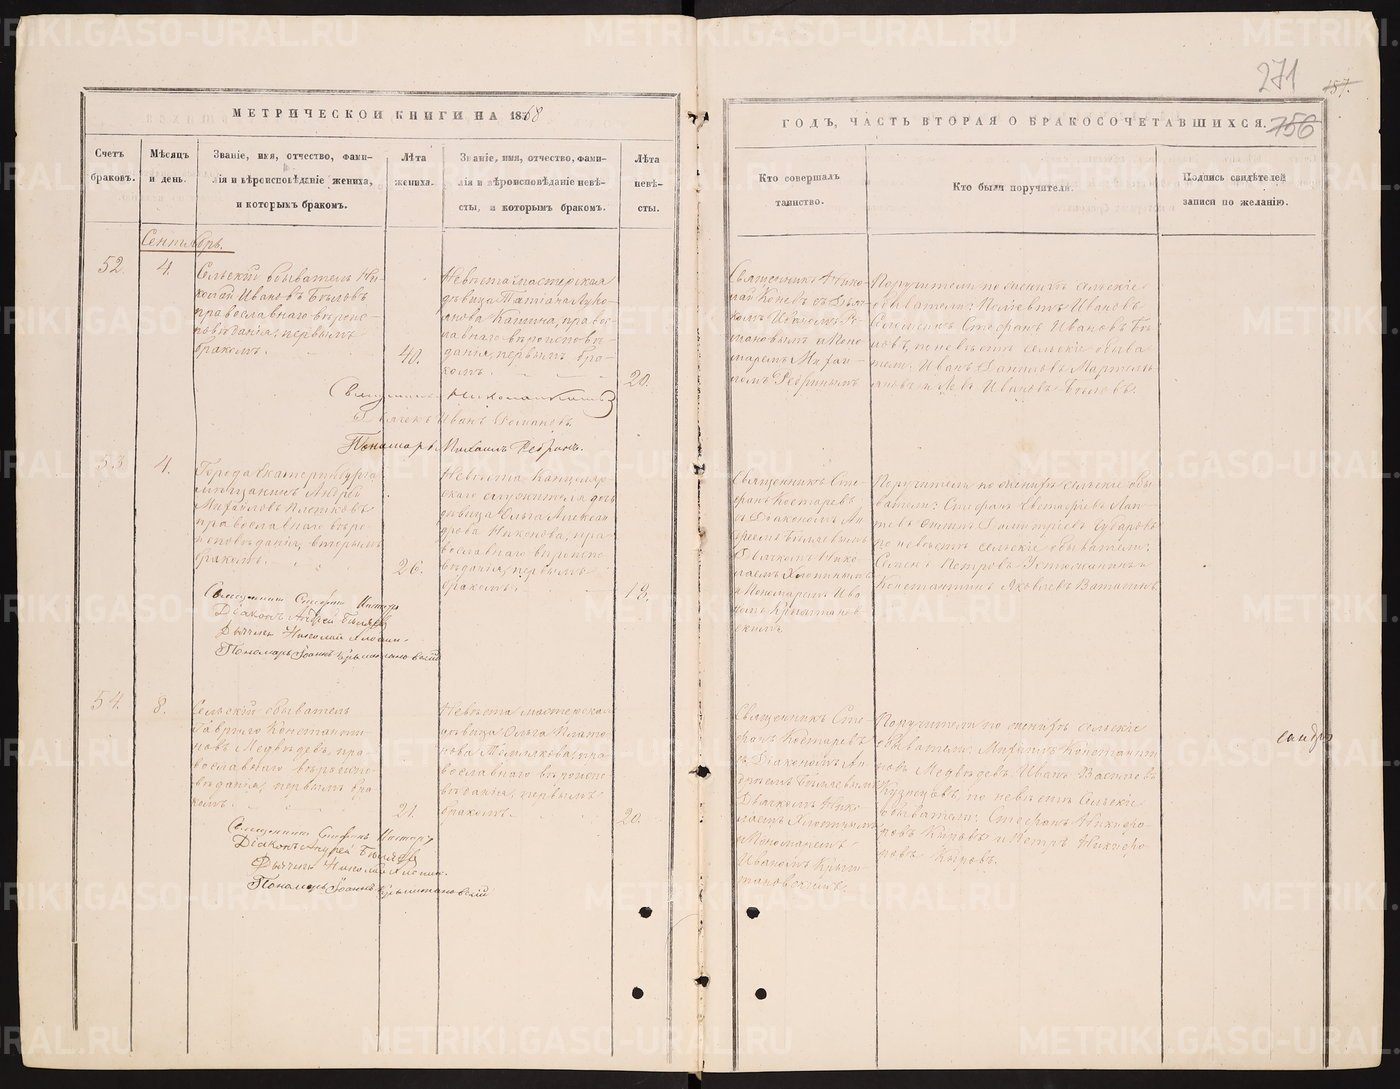 271
187.
МЕТРИЧЕСКОЙ КНИГИ НА 1868
ГОДЪ, ЧАСТЬ ВТОРАЯ О БРАКОСОЧЕТАВШИХСЯ.
756
Счетъ
браковъ.
Мѣсяцъ
и день.
Званіе, имя, отчество, фами-
лія и вѣроисповѣданіе жениха,
и которымъ бракомъ.
Лѣта
жениха.
Званіе, имя, отчество, фами-
лія и вѣроисповѣданіе невѣ-
сты, и которымъ бракомъ.
Лѣта
невѣ-
сты.
Кто совершалъ
таинство.
Кто были поручители.
Подпись свидѣтелей
записи по желанію.
Сентябрь.
52.
4.
Сельскій обыватель Ни-
колай Ивановъ Бѣловъ
православнаго вѣроис-
повѣданія, первымъ
бракомъ.
40.
Невѣста мастерская
дѣвица Татіана
православ-
наго вѣроисповѣ-
данія, первымъ бра-
комъ.
20.
Священникъ Нико-
лай Коневъ съ Дьяч-
комъ Иваномъ Ро-
мановымъ и Поно-
маремъ Михаи-
ломъ Ребринымъ
Поручители по женихѣ сельскіе
обыватели: Ивановъ
Стефанъ Ивановъ Бѣ-
ловъ, по невѣстѣ сельскіе обыва-
тели: Иванъ Даниловъ Мартемь-
яновъ и Левъ Ивановъ Бѣловъ.
Священникъ Николай Коневъ
Дьячекъ Иванъ Романовъ
Пономарь Михаилъ Ребринъ.
53.
4.
Города Екатеринбурга
мѣщанинъ Андрей
Михайловъ
православнаго вѣро-
исповѣданія, вторымъ
бракомъ.
26.
Невѣста Канцеляр-
скаго служителя дочь
дѣвица Ольга Алексан-
дрова Никонова, пра-
вославнаго вѣроиспо-
вѣданія, первымъ
бракомъ.
19.
Священникъ Сте-
фанъ Костаревъ
съ Діакономъ Ан-
дреемъ Бѣляевымъ
Дьячкомъ Нико-
лаемъ Хлопинымъ
и Пономаремъ Ива-
номъ Крыжтанов-
скимъ
Поручители по женихѣ сельскіе обы-
ватели: Стефанъ Евстафіевъ Лап-
тевъ Дмитріевъ Зубаревъ
по невѣстѣ сельскіе обыватели:
Семенъ Петровъ Устюжанинъ и
Константинъ Яковлевъ Ватагинъ
Священникъ Стефанъ Костаревъ
Діаконъ Андрей Бѣляевъ
Дьячекъ Николай Хлопин.
Пономарь Іоаннъ Крыжтановскій
54.
8.
Сельскій обыватель
Гаврило Константи-
новъ Медвѣдевъ, пра-
вославнаго вѣроиспо-
вѣданія, первымъ бра-
комъ.
21.
Невѣста мастерская
дѣвица Ольга Плато-
нова пра-
вославнаго вѣроиспо-
вѣданія, первымъ
бракомъ.
20.
Священникъ Сте-
фанъ Костаревъ
съ Діакономъ Ан-
дреемъ Бѣляевымъ
Дьячкомъ Нико-
лаемъ Хлопинымъ
и Пономаремъ
Иваномъ Крыж-
тановскимъ.
Поручители по женихѣ сельскіе
обыватели: Михаилъ Константи-
новъ Медвѣдевъ, Иванъ Васильевъ
Кузнецовъ, по невѣстѣ Сельскіе
обыватели: Стефанъ Никифо-
ровъ и Петръ Никифо-
ровъ
Священникъ Стефанъ Костаревъ
Діаконъ Андрей Бѣляевъ
Дьячекъ Николай Хлопин.
Пономарь Іоаннъ Крыжтановскій
METRIKI.GASO-URAL.RU